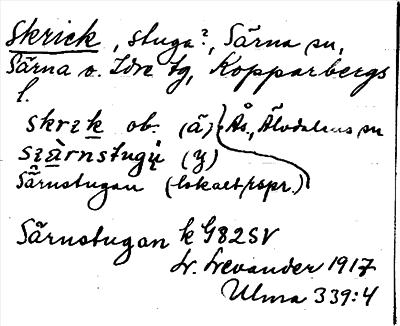 Skrick, stuga?, Särna sn,
Särna o. Idre tg, Kopparbergs
l.
skrik ob. (ä) Ås, Älvdalens sn
(y)
Särnstugan (lokalt/rspr.)
Särnstugan k G82SV
Lr. Levander 1917
Ulma 339:4